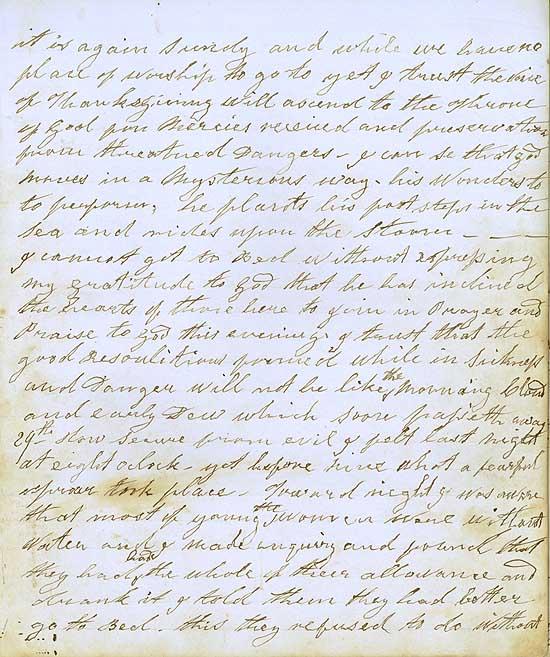 it is again Sundy and while we have no
place of worship to go to yet I trust the voice
of Thanksgivinng will ascend to the Throne
of God for Mercies received and preservation
from threatned Dangers - I can se that god
moves in a Mysterious way. his Wonders to
to perform, he plants his foot steps in the
sea and rides upon the storm -
I cannot got to Bed without expressing
my gratitude to God that he has inclined
the hearts of those here to join in Prayer and
Praise to god this evening, I trust that the
good Resoulitions formed while in Sickness
and Danger will not be like the Morning Cloud
and early Dew which soon passeth away
29th how secure from evil I felt last night
at eight oclock - yet before nine what a fearful
uproar took place - Toward night I was aware
that most of young the Women were without
Water and I made enquiry and found that
they had had the whole of their allowance and
drank it I told them they had better
go to Bed - this they refused to do without